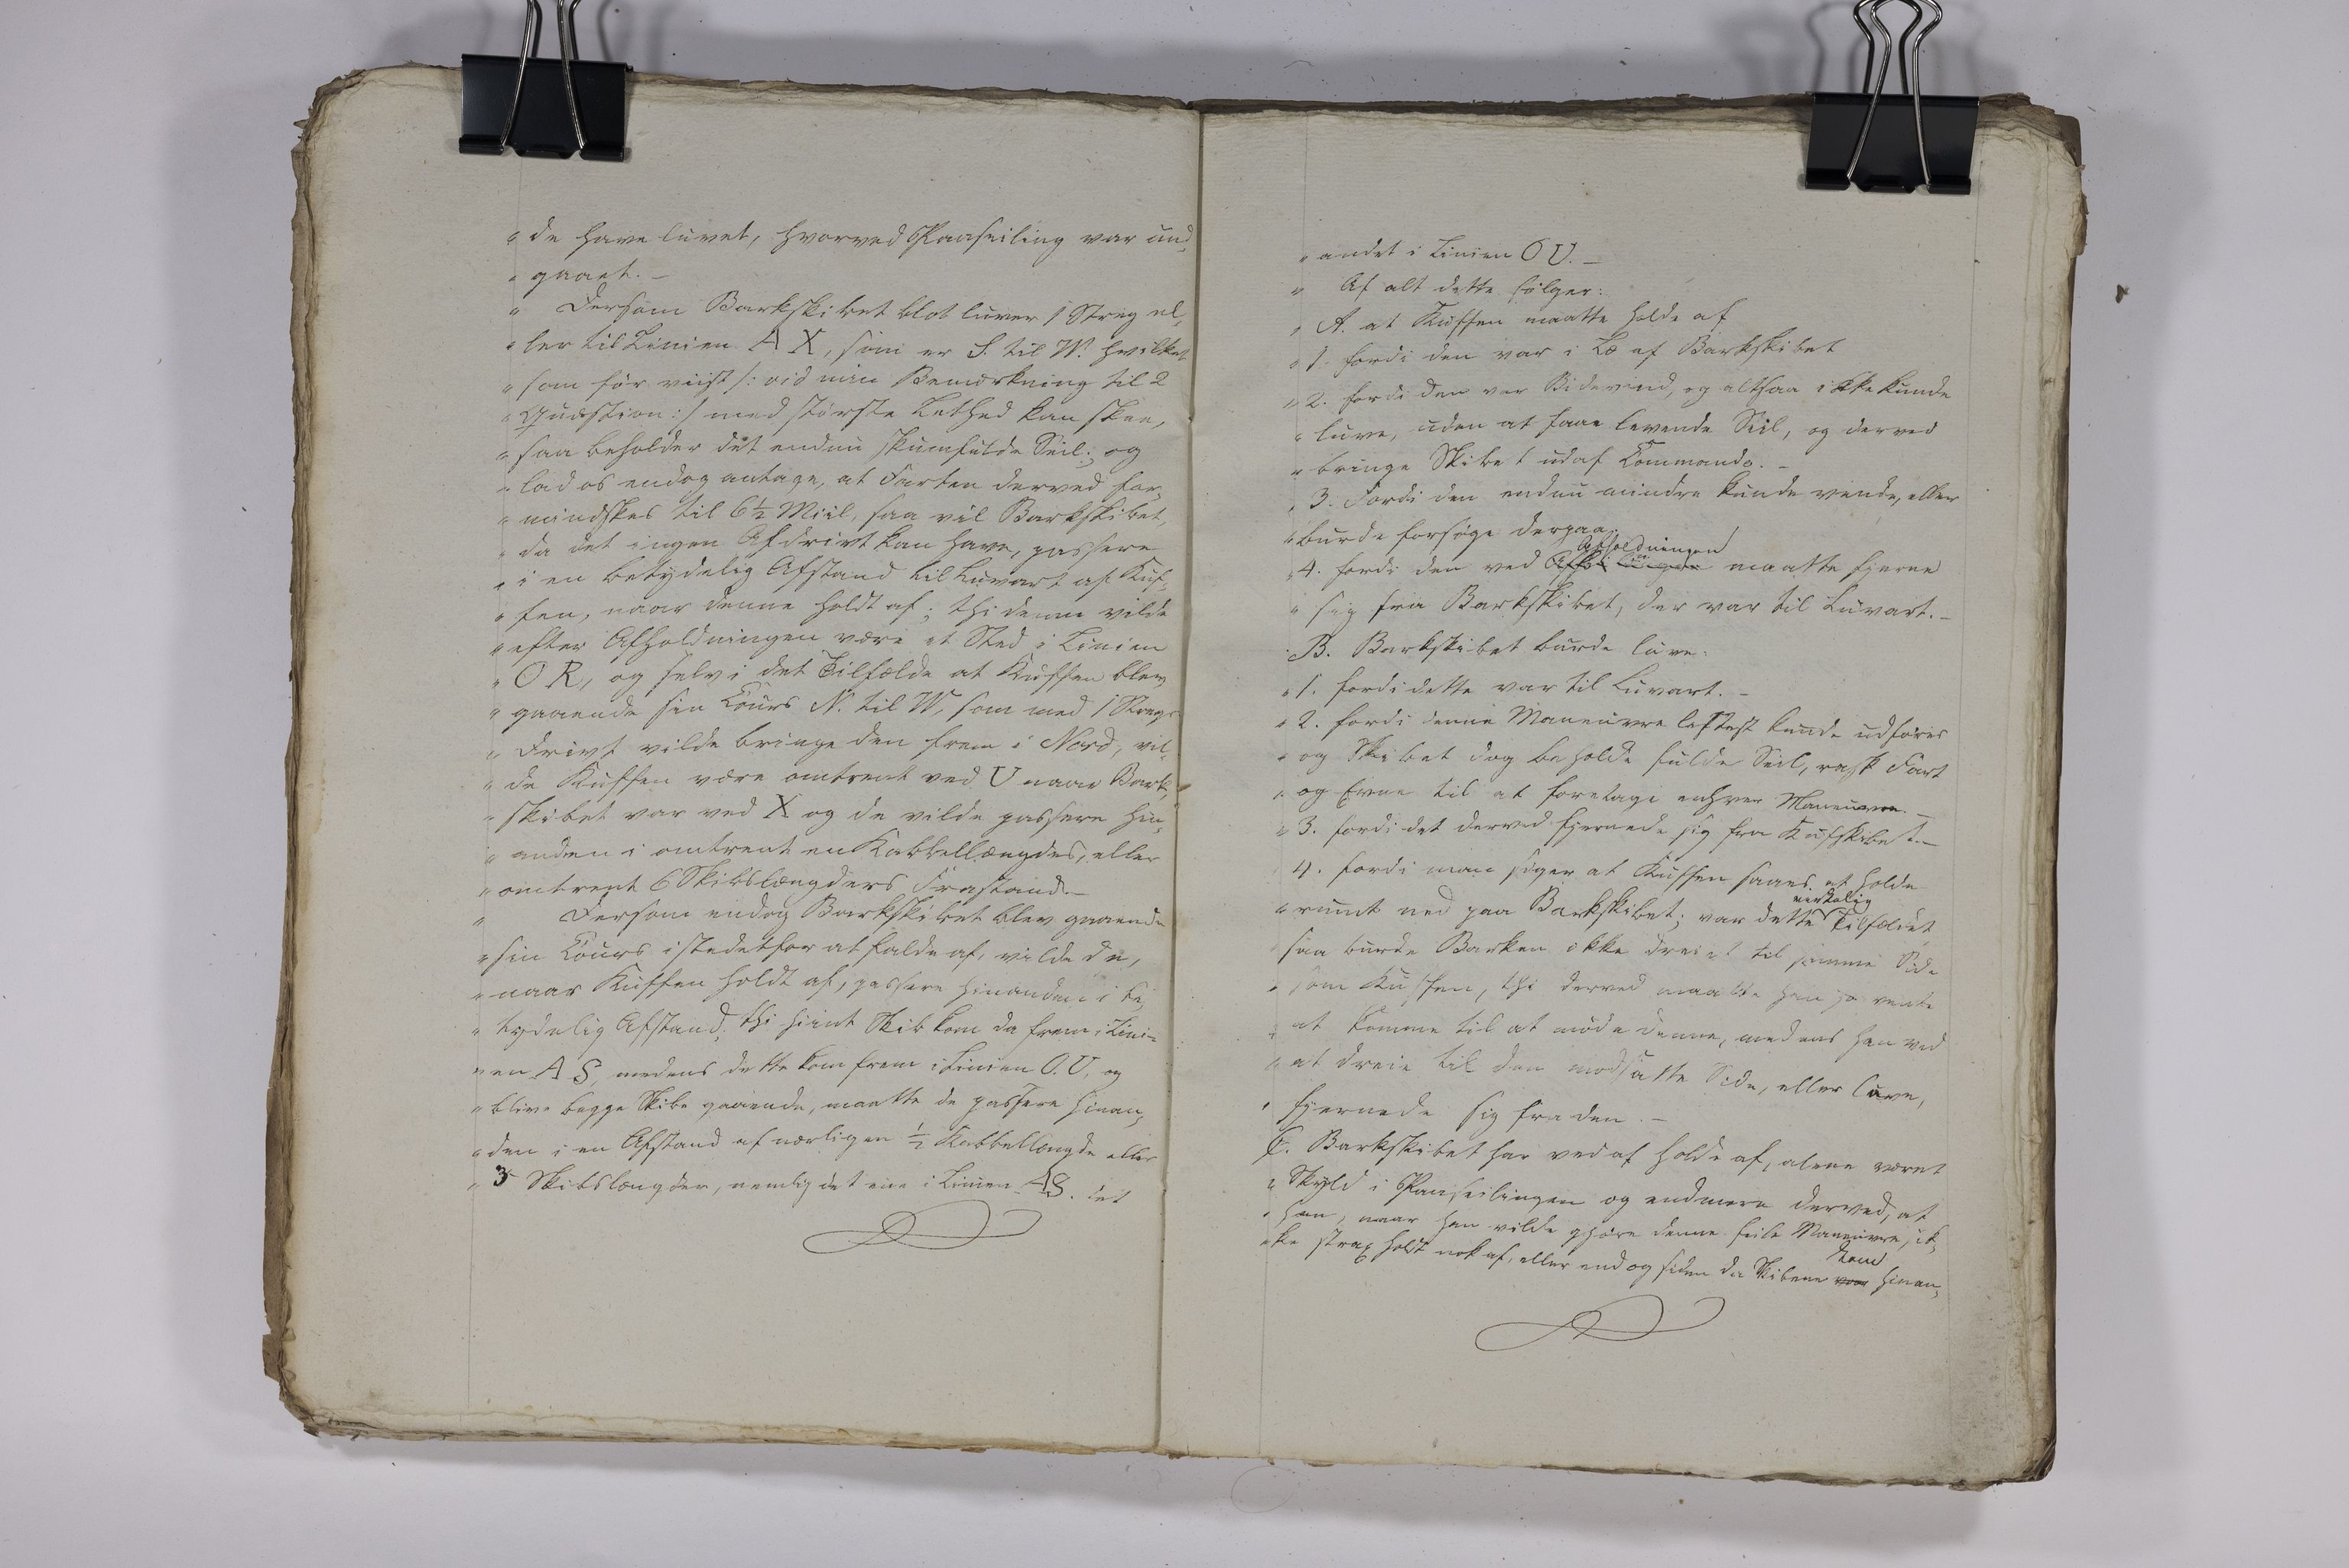 „ de have luvet, hvorved Paaseiling var und„
„ gaaet. –
„ Dersom Barkskibet blot luver 1 Streg el„
„ ler til Linien A X, som er S. til W. hvilket
„ som før viist /: vid min Bemærkning til 2
„ Quæstion :/ med største Lethed kan skee,
„ saa beholder det endnu skumfulde Seil; og
„ lad os endog antage, at Farten derved for„
„ mindskes til 6½ Miil, saa vil Barkskibet,
„ da det ingen Afdrivt kan have, passere
„ i en betydelig Afstand til Luvart af Kuf„
„ fen, naar denne holdt af; thi denne vilde
„ efter Afholdningen være et Sted i Linien
„ O R, og selv i det Tilfælde at Kuffen blev
„ gaaende sin Cours N. til W, som med 1 Stregs
„ Drivt vilde bringe den frem i Nord, vil„
„ de Kuffen være omtrent ved U naar Bark„
„ skibet var ved X og de vilde passere hin„
„ anden i omtrent en Kabbellængdes, eller
„ omtrent 6 Skibslængders Frastand. –
„ Dersom endog Barkskibet blev gaaende
„ sin Cours istedetfor at falde af, vilde de,
„ naar Kuffen holdt af, passere hinanden i be„
„ tydelig Afstand; thi hiint Skib kom da frem i Lini„
„ en A S, medens dette kom frem i Linien O. U, og
„ blive begge Skibe gaaende, maatte de passere hinan„
„ den i en Afstand af nærligen ½ Kabbellængde eller
„ 3 Skibslængder, nemlig det ene i Linien A S. det
„ andet i Linien O U. –
„ Af alt dette følger:
„ A. at Kuffen maatte holde af
„ 1. fordi den var i Læ af Barkskibet
„ 2. fordi den var Bidevind, og altsaa ikke kunde
„ luve, uden at faae levende Seil, og derved
„ bringe Skibet udaf Commando. –
„ 3. Fordi den endnu mindre kunde vende, eller
„ burde forsøge derpaa.
Afholdningen
„ 4. fordi den ved maatte fjerne
„ sig fra Barkskibet, der var til Luvart. –
„ B. Barkskibet burde luve.
„ 1. fordi dette var til Luvart. –
„ 2. fordi denne Maneuvre lettest kunde udføres
„ og Skibet dog beholde fulde Seil, rask Fart
„ og Evne til at foretage enhver Maneuvre. –
„ 3. fordi det derved fjernede sig fra Kufskibet. –
4. fordi man siger at Kuffen saaes at holde
virkelig
„ rumt ned paa Barkskibet; var dette Tilfældet
saa burde Barken ikke dreiet til samme Side
„ som Kuffen, thi derved maatte han jo vente
„ at komme til at møde denne, medens han ved
„ at dreie til den modsatte Side, eller luve,
„ fjernede sig fra den. –
C. Barkskibet har ved at holde af, alene været
„ Skyld i Paaseilingen og endmere derved, at
„ han, naar han vilde gjøre denne feile Maneuvre, ik„
kom
„ ke strax holdt nok af, eller endog siden da Skibene var hinan„